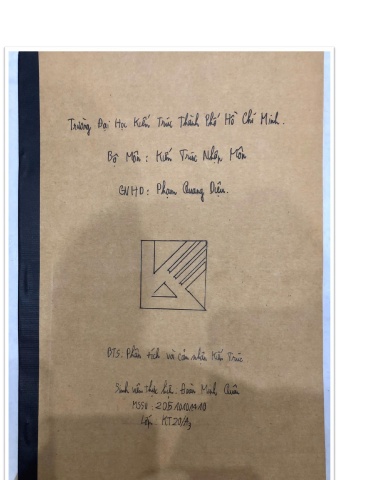 Trường Đại Học Kiến Trúc Thành Phố Hồ Chí Minh.
Bộ Môn: Kiến Trúc Nhập Môn
GVHD: Phạm Quang Diệu.
ĐT5: Phân tích và cảm nhận Kiến Trúc
Sinh viên thực hiện: Đoàn Minh
MSSV:
Lớp: KT20/A3